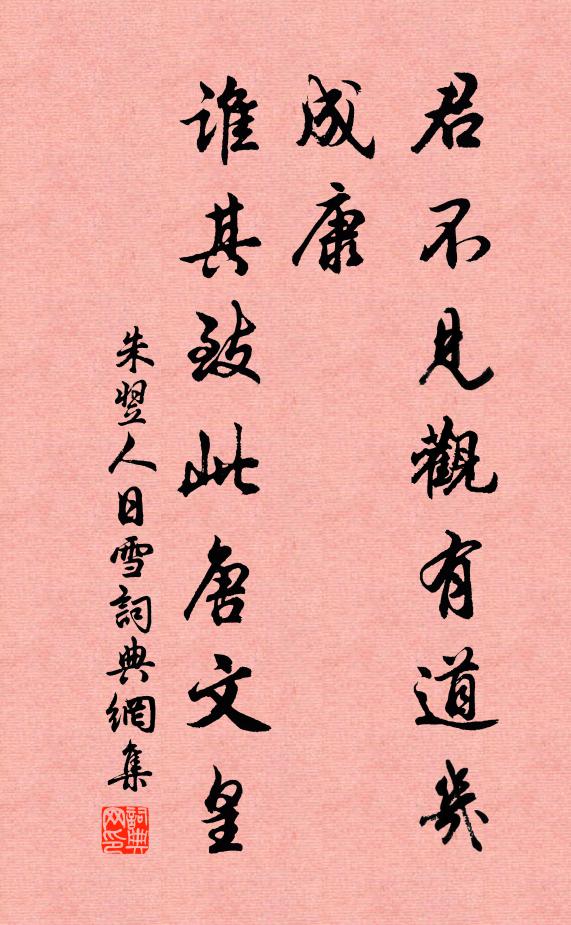 君不見觀有道幾
成康
誰其致此唐文皇
朱翌人日雪詞典網集
詞典网印